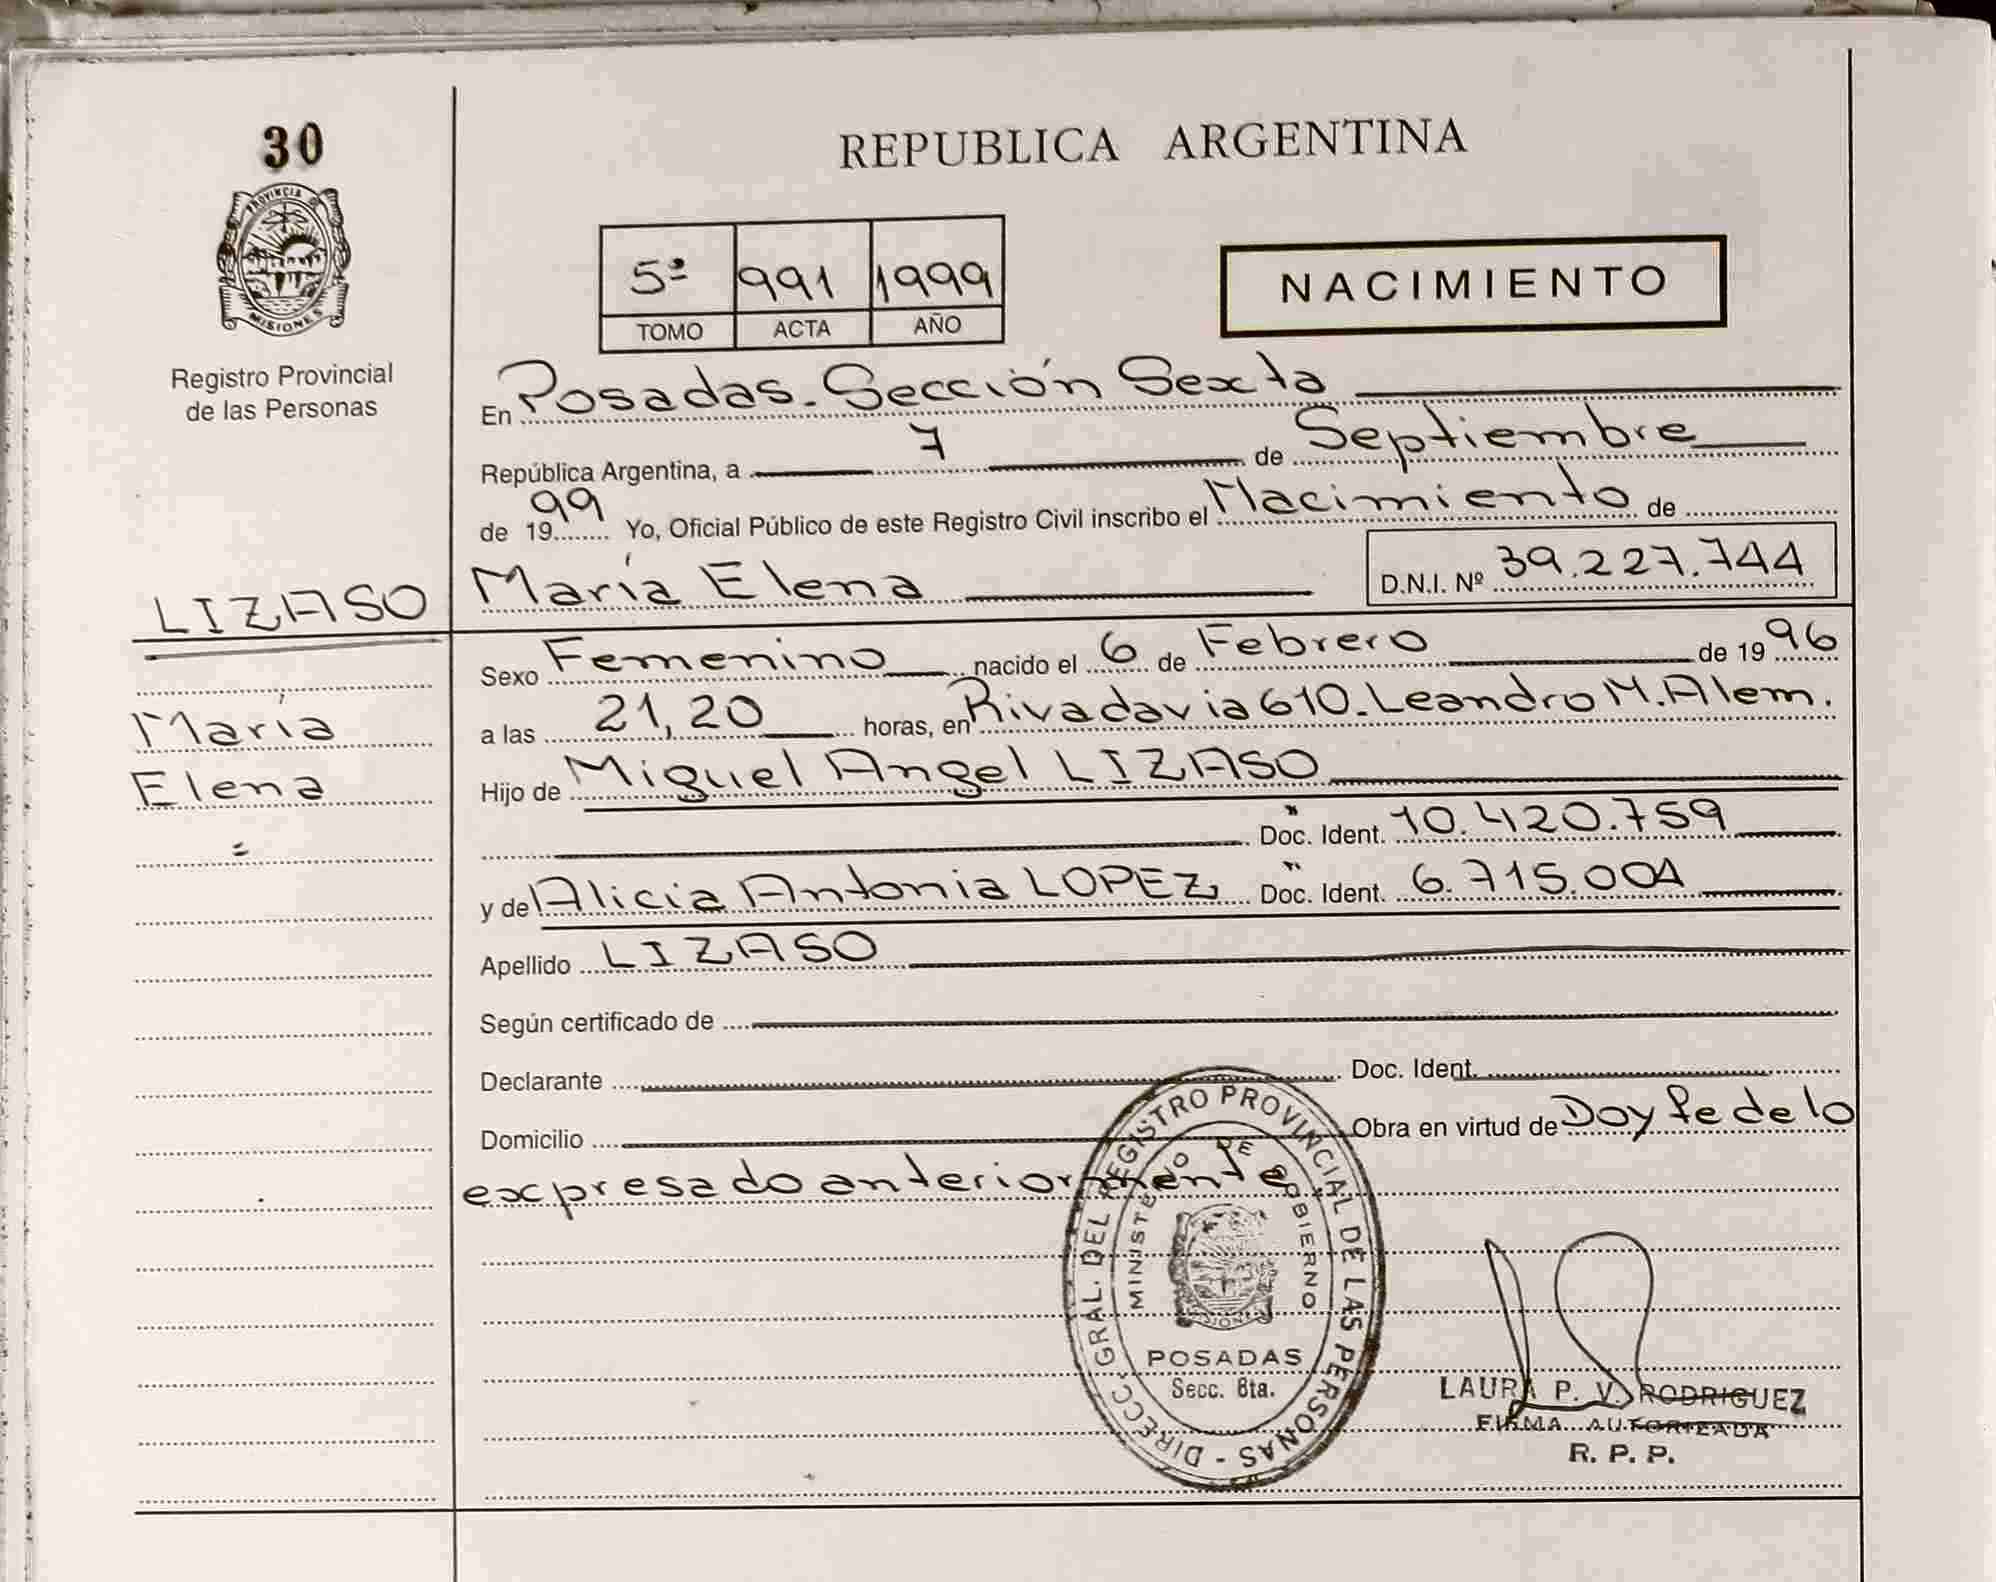 30
PROVINCIA DE
MISIONES
Registro Provincial
de las Personas
LIZASO
María
Elena
=
REPUBLICA ARGENTINA
5ª 991 1999
TOMO ACTA AÑO
NACIMIENTO
En Posadas. Sección Sexta
República Argentina, a 7 de Septiembre
de 1999 Yo, Oficial Público de este Registro Civil inscribo el Nacimiento de
María Elena D.N.I. Nº 39.227.744
Sexo Femenino nacido el 6 de Febrero de 1996
a las 21,20 horas, en Rivadavia 610. Leandro M. Alem.
Hijo de Miguel Angel LIZASO
Doc. Ident. 10.420.759
y de Alicia Antonia LOPEZ Doc. Ident. 6.715.004
Apellido LIZASO
Según certificado de
Declarante Doc. Ident.
Domicilio Obra en virtud de Doy fe de lo
expresado anteriormente
DIRECC. GRAL. DEL REGISTRO PROVINCIAL DE LAS PERSONAS -
MINISTERIO DE GOBIERNO
MISIONES
POSADAS
Secc. 6ta.
LAURA P. V. RODRIGUEZ
FIRMA AUTORIZADA
R. P. P.